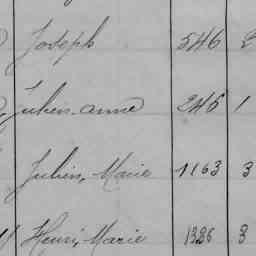 Joseph 546 2
Julien. anne 246 1
Julien, Marie 1163 3
Henri, Marie 1326 3